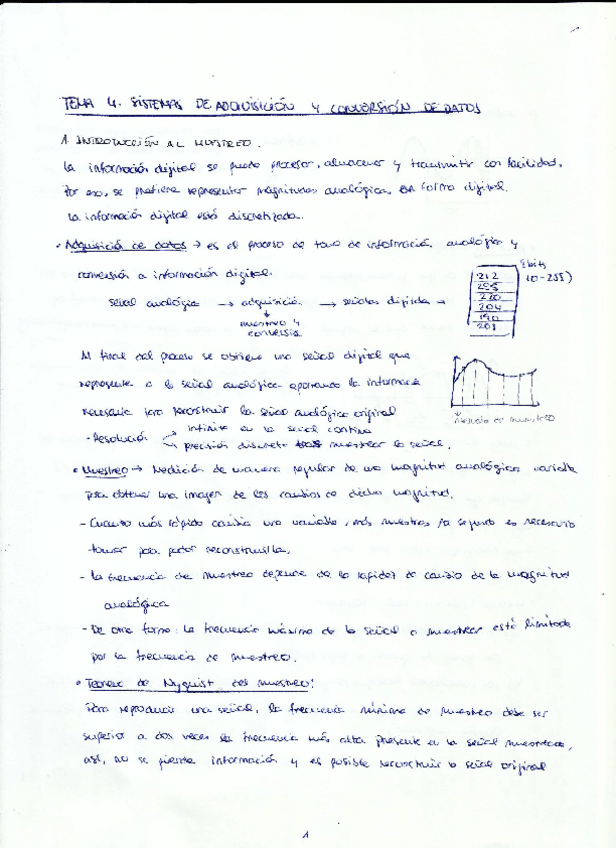 TEMA 4. SISTEMAS DE ADQUISICIÓN Y CONVERSIÓN DE DATOS
1. INTRODUCCIÓN AL MUESTREO.
La información digital se puede procesar, almacenar y transmitir con facilidad.
Por eso, se prefiere representar magnitudes analógicas en forma digital.
La información digital está discretizada.
• Adquisición de datos → es el proceso de toma de información analógica y
conversión a información digital.
8 bits
(0-255)
señal analógica → adquisición → señales digitales →
muestreo y
conversión
212
255
220
204
190
201
Al final del proceso se obtiene una señal digital que
representa a la señal analógica aportando la información
necesaria para reconstruir la señal analógica original
intervalo de muestreo
- Resolución → infinita en la señal continua
→ precisión discreta muestrear la señal.
• Muestreo → Medición de manera regular de una magnitud analógica variable
para obtener una imagen de los cambios de dicha magnitud.
- Cuanto más rápido cambia una variable, más muestras por segundo es necesario
tomar para poder reconstruirla.
- La frecuencia de muestreo depende de la rapidez de cambio de la magnitud
analógica
- De otra forma: la frecuencia máxima de la señal a muestrear está limitada
por la frecuencia de muestreo.
• Teorema de Nyquist del muestreo:
Para reproducir una señal, la frecuencia mínima de muestreo debe ser
superior a dos veces la frecuencia más alta presente en la señal muestreada,
así, no se pierde información y es posible reconstruir la señal original
1